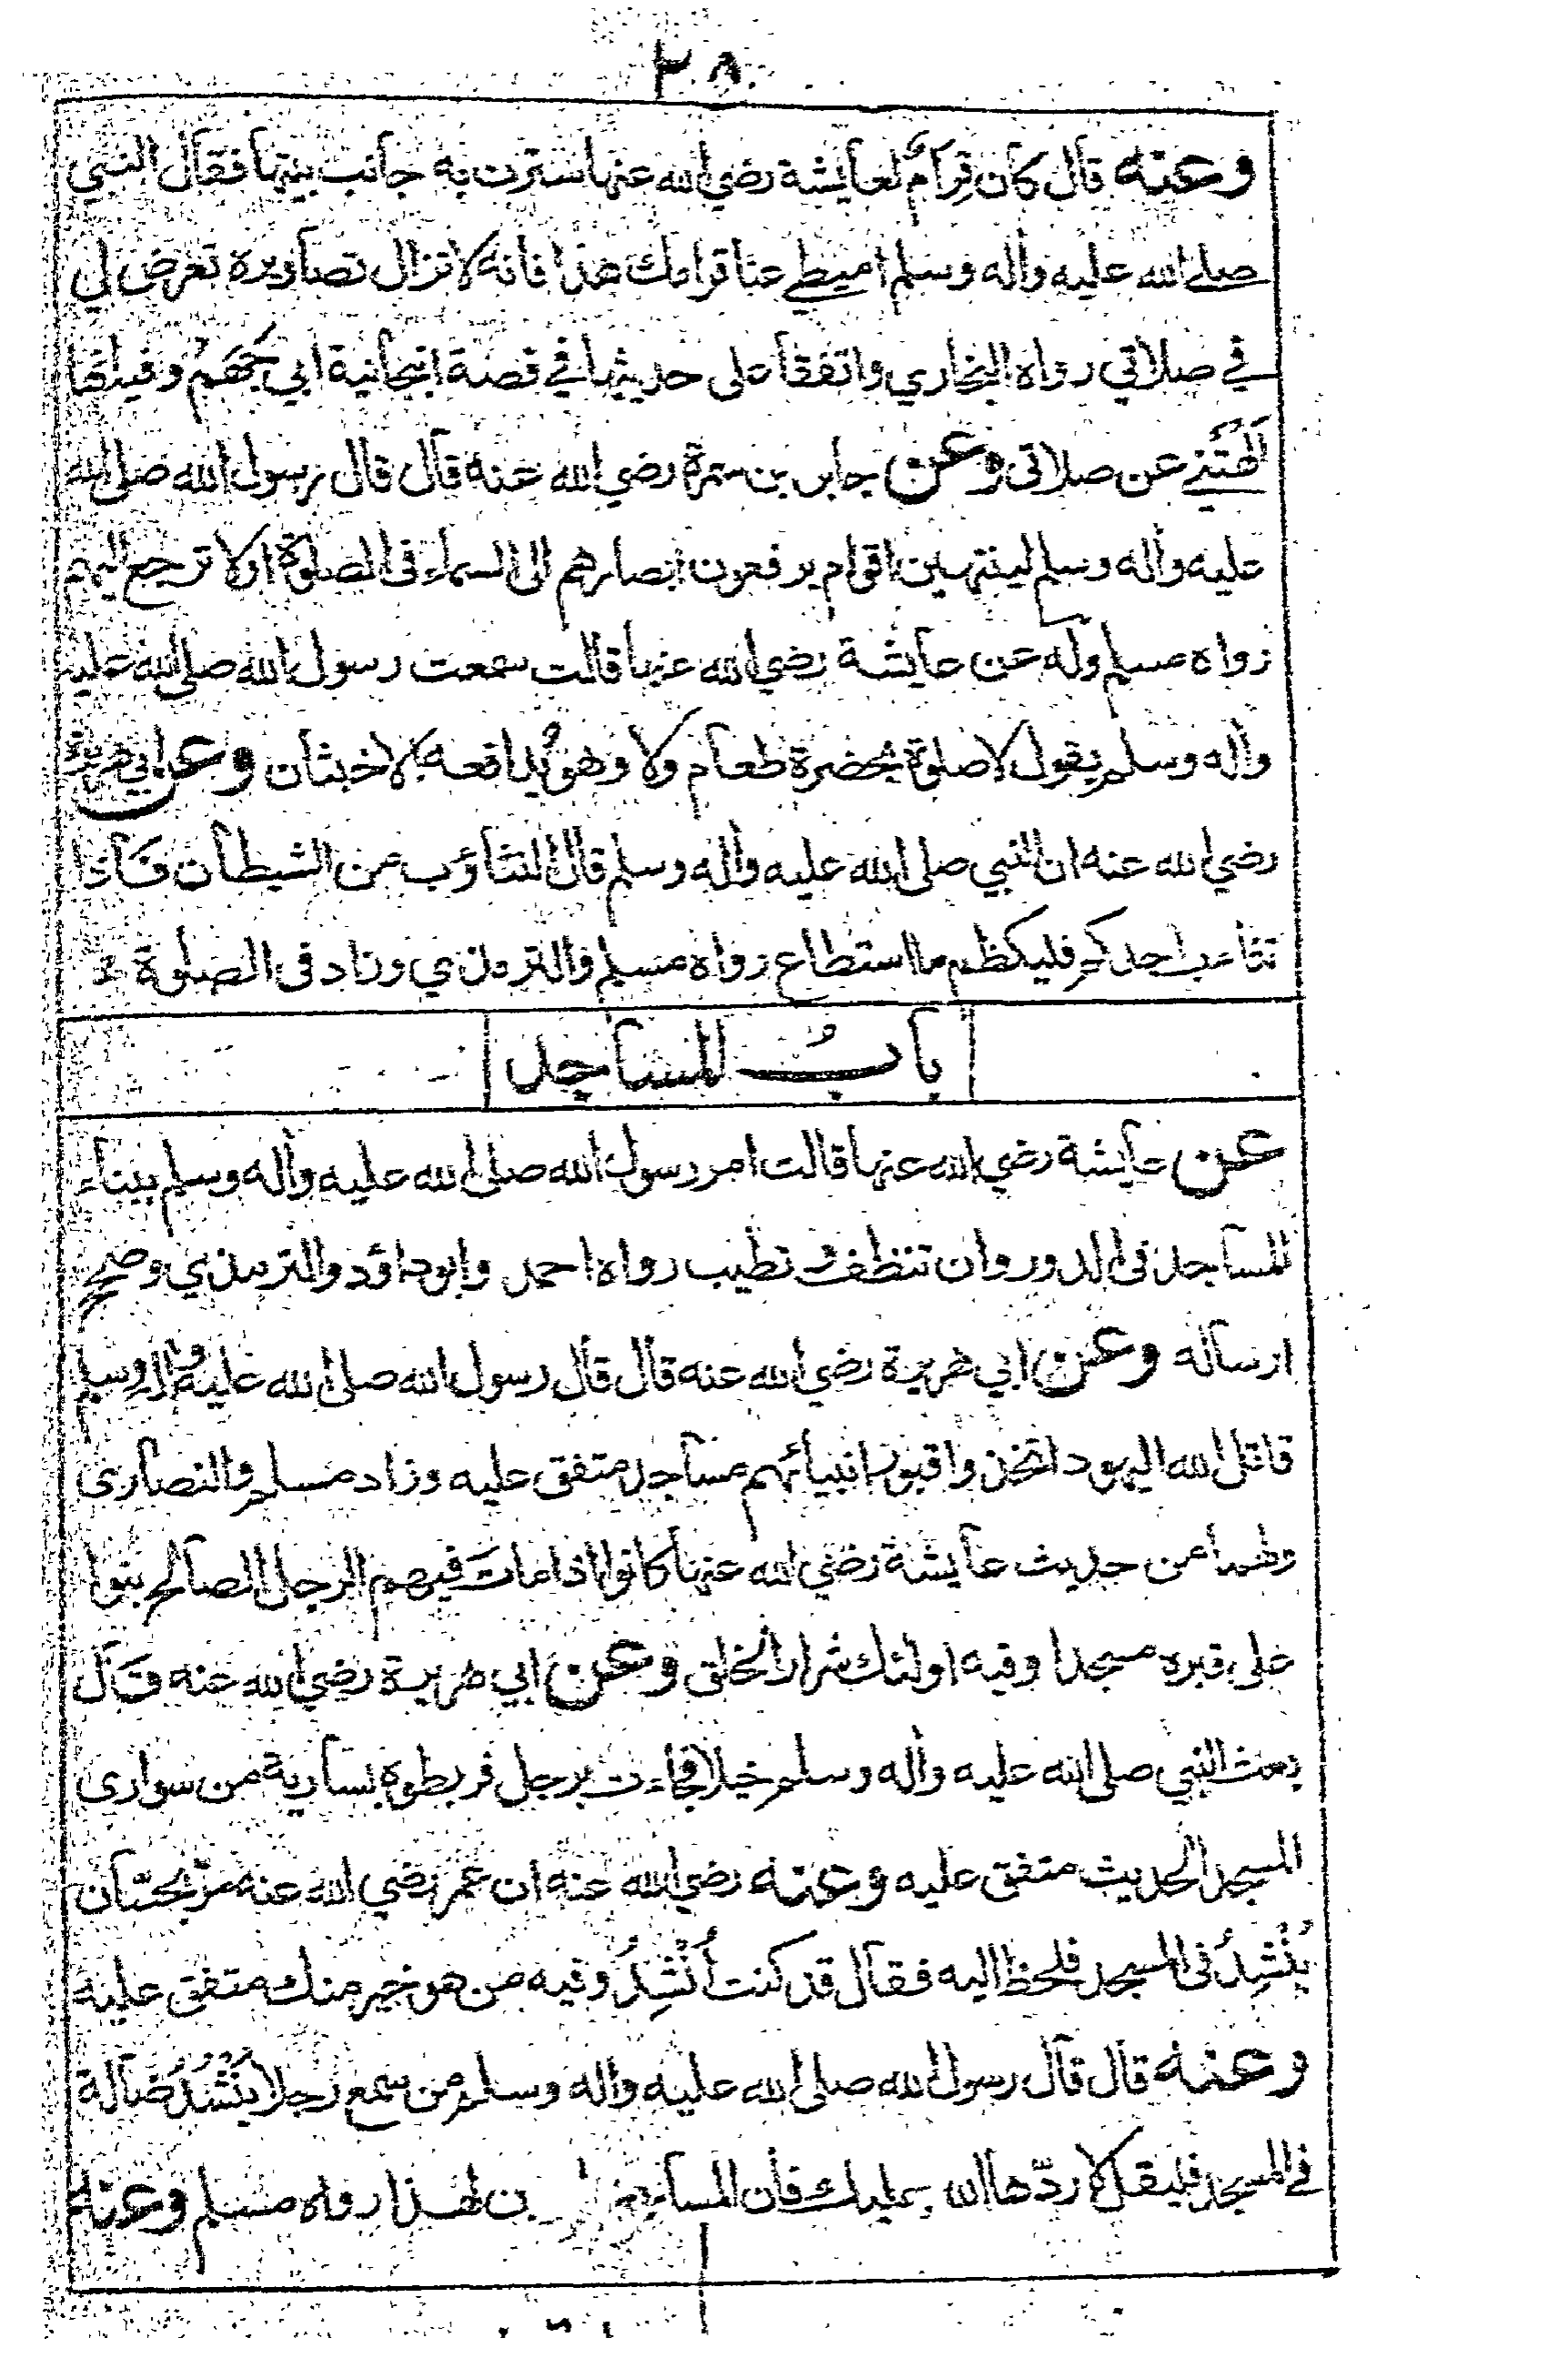 ٣٨
وعنه قال كان قِرامٌ لعايشة رضي الله عنها سترت به جانب بيتها فقال النبي
صلى الله عليه واله وسلم اميطي عنا قرامك هذا فانه لا تزال تصاويره تعرض لي
في صلاتي رواه البخاري واتفقا على حديثها في قصة انبجانية ابي جهم وفيه انها
الهتني عن صلاتي وعن جابر بن سمرة رضي الله عنه قال قال رسول الله صلى الله
عليه واله وسلم لينتهين اقوام يرفعون ابصارهم الى السماء فى الصلوة او لا ترجع اليهم
رواه مسلم وله عن عايشة رضي الله عنها قالت سمعت رسول الله صلى الله عليه
واله وسلم يقول لا صلوة بحضرة طعام ولا وهو يدافعه الاخبثان وعن ابي هريرة
رضي الله عنه ان النبي صلى الله عليه واله وسلم قال التثاؤب من الشيطان فاذا
تثاءب احدكم فليكظم ما استطاع رواه مسلم والترمذي وزاد فى الصلوة
بابُ المساجد
عن عايشة رضي الله عنها قالت امر رسول الله صلى الله عليه واله وسلم ببناء
المساجد فى الدور وان تنظف وتطيب رواه احمد وابو داؤد والترمذي وصحح
ارساله وعن ابي هريرة رضي الله عنه قال قال رسول الله صلى الله عليه واله وسلم
قاتل الله اليهود اتخذوا قبور انبيائهم مساجد متفق عليه وزاد مسلم والنصارى
ولهما من حديث عايشة رضي الله عنها كانوا اذا مات فيهم الرجل الصالح بنوا
على قبره مسجدا وفيه اولئك شرار الخلق وعن ابي هريرة رضي الله عنه قال
بعث النبي صلى الله عليه واله وسلم خيلا فجاءت برجل فربطوه بسارية من سوارى
المسجد الحديث متفق عليه وعنه رضي الله عنه ان عمر رضي الله عنه مرّ بحسّان
يُنْشِدُ فى المسجد فلحظ اليه فقال قد كنت أُنْشِدُ وفيه من هو خير منك متفق عليه
وعنه قال قال رسول الله صلى الله عليه واله وسلم من سمع رجلا يَنْشُدُ ضالة
في المسجد فليقل لا ردّها الله عليك فان المساجد بن لهذا رواه مسلم وعنه